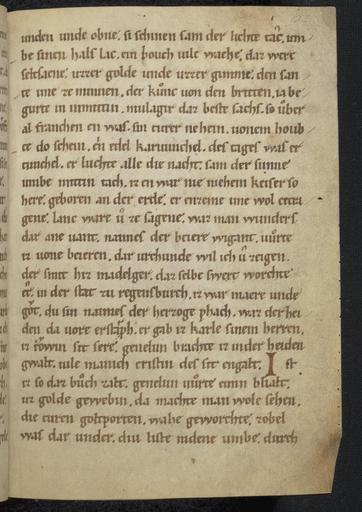 unden unde obne. si schinen sam der liehte tac. um
be sinen hals lac. ein pouch uile waehe. daz werc
seltsaene. uzzer golde unde uzzer gimme. den san
te ime ze minnen. der kunc uon den britten. ia be
gurte in inmitten. mulagir daz beste sachs. so uber
al franchen en was. sin eurer nehein. uonem houb
te do schein. ein edel karuunchel. des tages was er
tunchel. er luchte alle die nacht. sam der sunne
umbe mitten tach. iz en war nie nehein keiser so
here. geboren an der erde. er enzeme ime wol ceeigene
gene. lanc ware ů ze sagene. waz man wunders
dar ane uant. naimes der beiere wigant. uůrte
iz uone beieren. daz urchunde wil ich ů zeigen.
der smit hiz madelger. daz selbe swert worchte
er. in der stat zu regensburch. iz war maere unde
gůt. du sin naimes der herzoge phach. waz der hei
den da uore ersluch. er gab iz karle sinem herren.
iz rowin sit sere. genelun brachte iz under heiden
gwalt. uile manich cristin des sit engalt. Ist
iz so daz bůch zalt. genelun uůrte einin bliait.
uz golde gewebin. da machte man wole sehen.
die turen goltporten. wahe geworchte. zobel
was dar under. diu liste nidene umbe. durch